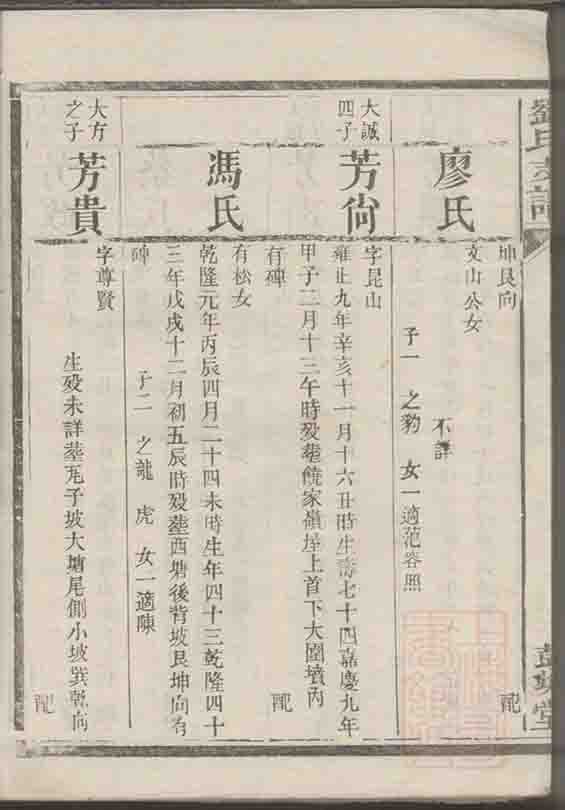 劉氏支譜
堂
坤艮向
配
廖氏
文山公女
不詳
子一 之豹 女一適范容照
大誠
四子
芳尙
字昆山
雍正九年辛亥十一月十六丑時生壽七十四嘉慶九年
甲子二月十三午時殁塟饒家嶺垕上首下大圍墳丙
有碑
配
馮氏
有松女
乾隆元年丙辰四月二十四未時生年四十三乾隆四十
三年戊戌十二月初五辰時殁塟西塘後背坡艮坤向有
碑
子二 之龍 虎 女一適陳
大方
之子
芳貴
字尊賢
生殁未詳塟瓦子坡大塘尾側小坡巽乾向
配